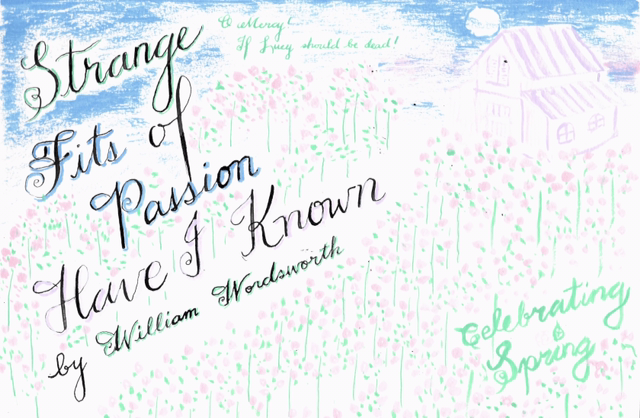 Strange
Fits of
Passion
Have I Known
by William Wordsworth
O Mercy!
If Lucy should be dead!
Celebrating
Spring